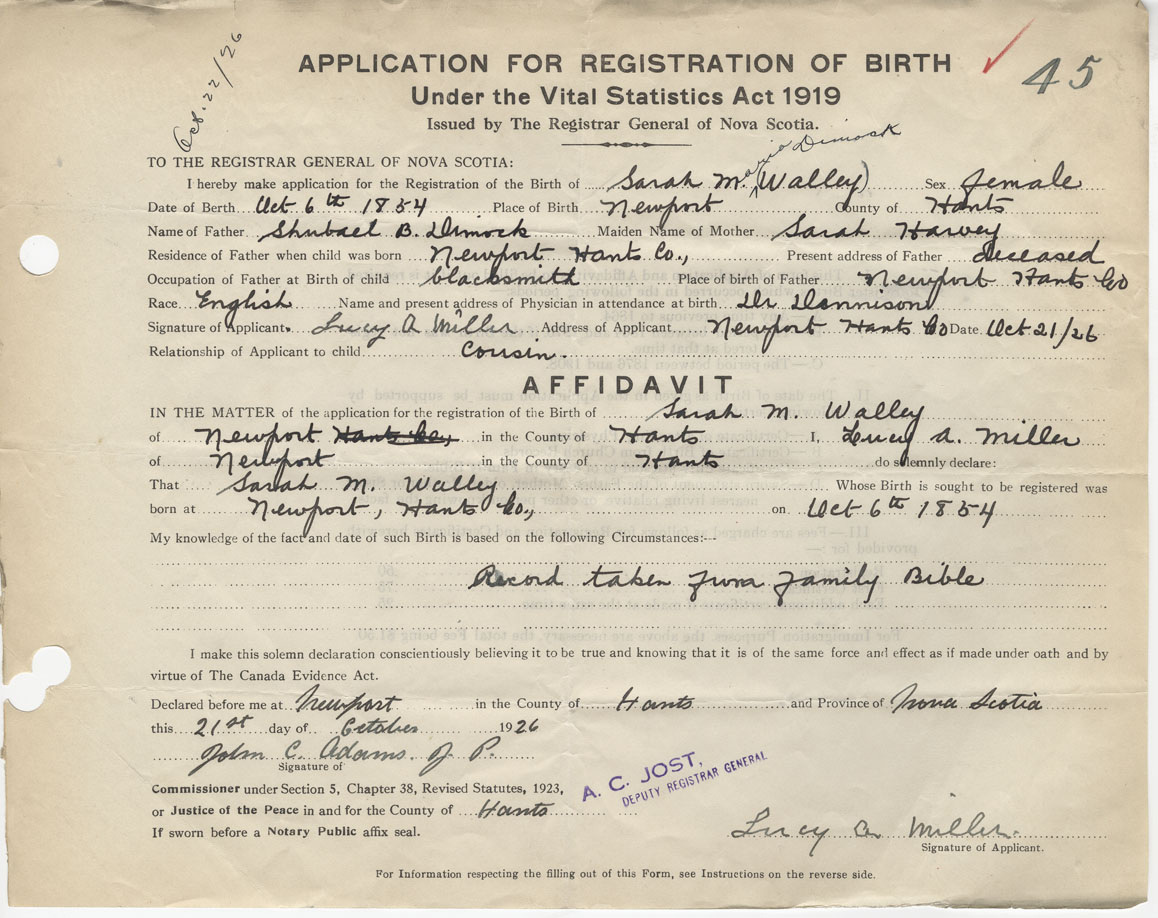 Oct. 22/26
45
APPLICATION FOR REGISTRATION OF BIRTH
Under the Vital Statistics Act 1919
Issued by The Registrar General of Nova Scotia.
TO THE REGISTRAR GENERAL OF NOVA SCOTIA:
Dimock
I hereby make application for the Registration of the Birth of Sarah M. (Walley) Sex female
Date of Berth Oct 6th 1854 Place of Birth Newport County of Hants
Name of Father Shubael B. Dimock Maiden Name of Mother Sarah Harvey
Residence of Father when child was born Newport Hants Co., Present address of Father deceased
Occupation of Father at Birth of child blacksmith Place of birth of Father Newport Hants Co
Race English Name and present address of Physician in attendance at birth Dr Dennison
Signature of Applicant. Lucy A Miller Address of Applicant Newport Hants Co Date Oct 21/26
Relationship of Applicant to child Cousin.
AFFIDAVIT
IN THE MATTER of the application for the registration of the Birth of Sarah M. Walley
of Newport Hants Co., in the County of Hants I, Lucy A. Miller
of Newport in the County of Hants do solemnly declare:
That Sarah M. Walley Whose Birth is sought to be registered was
born at Newport, Hants Co., on Oct 6th 1854
My knowledge of the fact and date of such Birth is based on the following Circumstances:--
Record taken from family Bible
I make this solemn declaration conscientiously believing it to be true and knowing that it is of the same force and effect as if made under oath and by
virtue of The Canada Evidence Act.
Declared before me at Newport in the County of Hants and Province of Nova Scotia
this 21st day of October 1926
John C. Adams. J P.
Signature of
Commissioner under Section 5, Chapter 38, Revised Statutes, 1923,
or Justice of the Peace in and for the County of Hants
If sworn before a Notary Public affix seal.
A. C. JOST,
DEPUTY REGISTRAR GENERAL
Lucy A Miller.
Signature of Applicant.
For Information respecting the filling out of this Form, see Instructions on the reverse side.